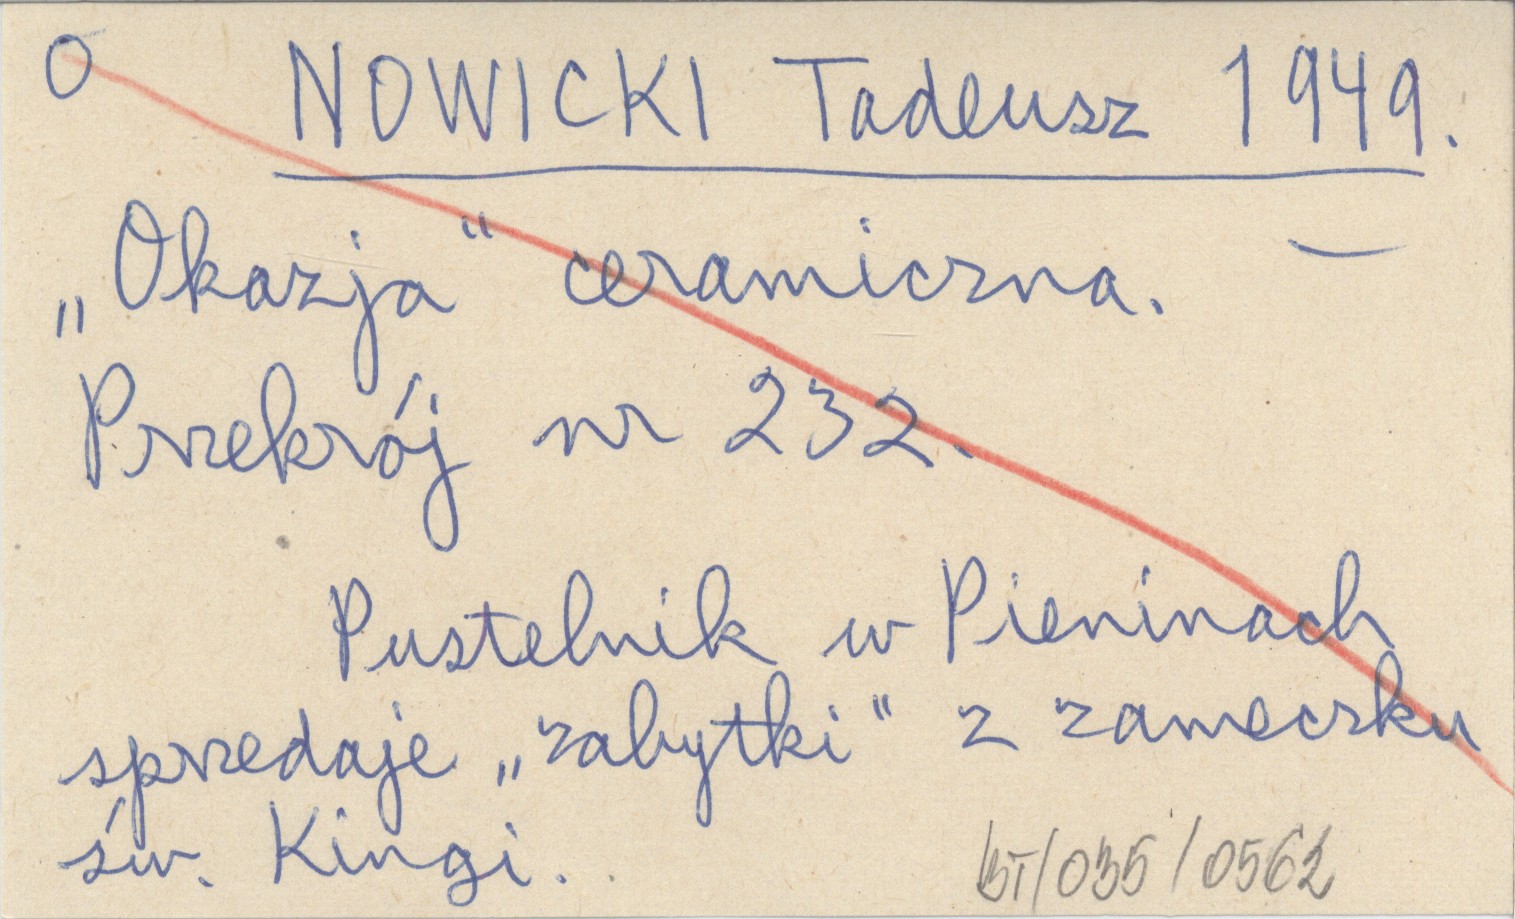 O NOWICKI Tadeusz 1949.
„Okazja" ceramiczna.
Przekrój nr 232.
Pustelnik w Pieninach
sprzedaje „zabytki" z zameczku
św. Kingi.
BT/035/0562